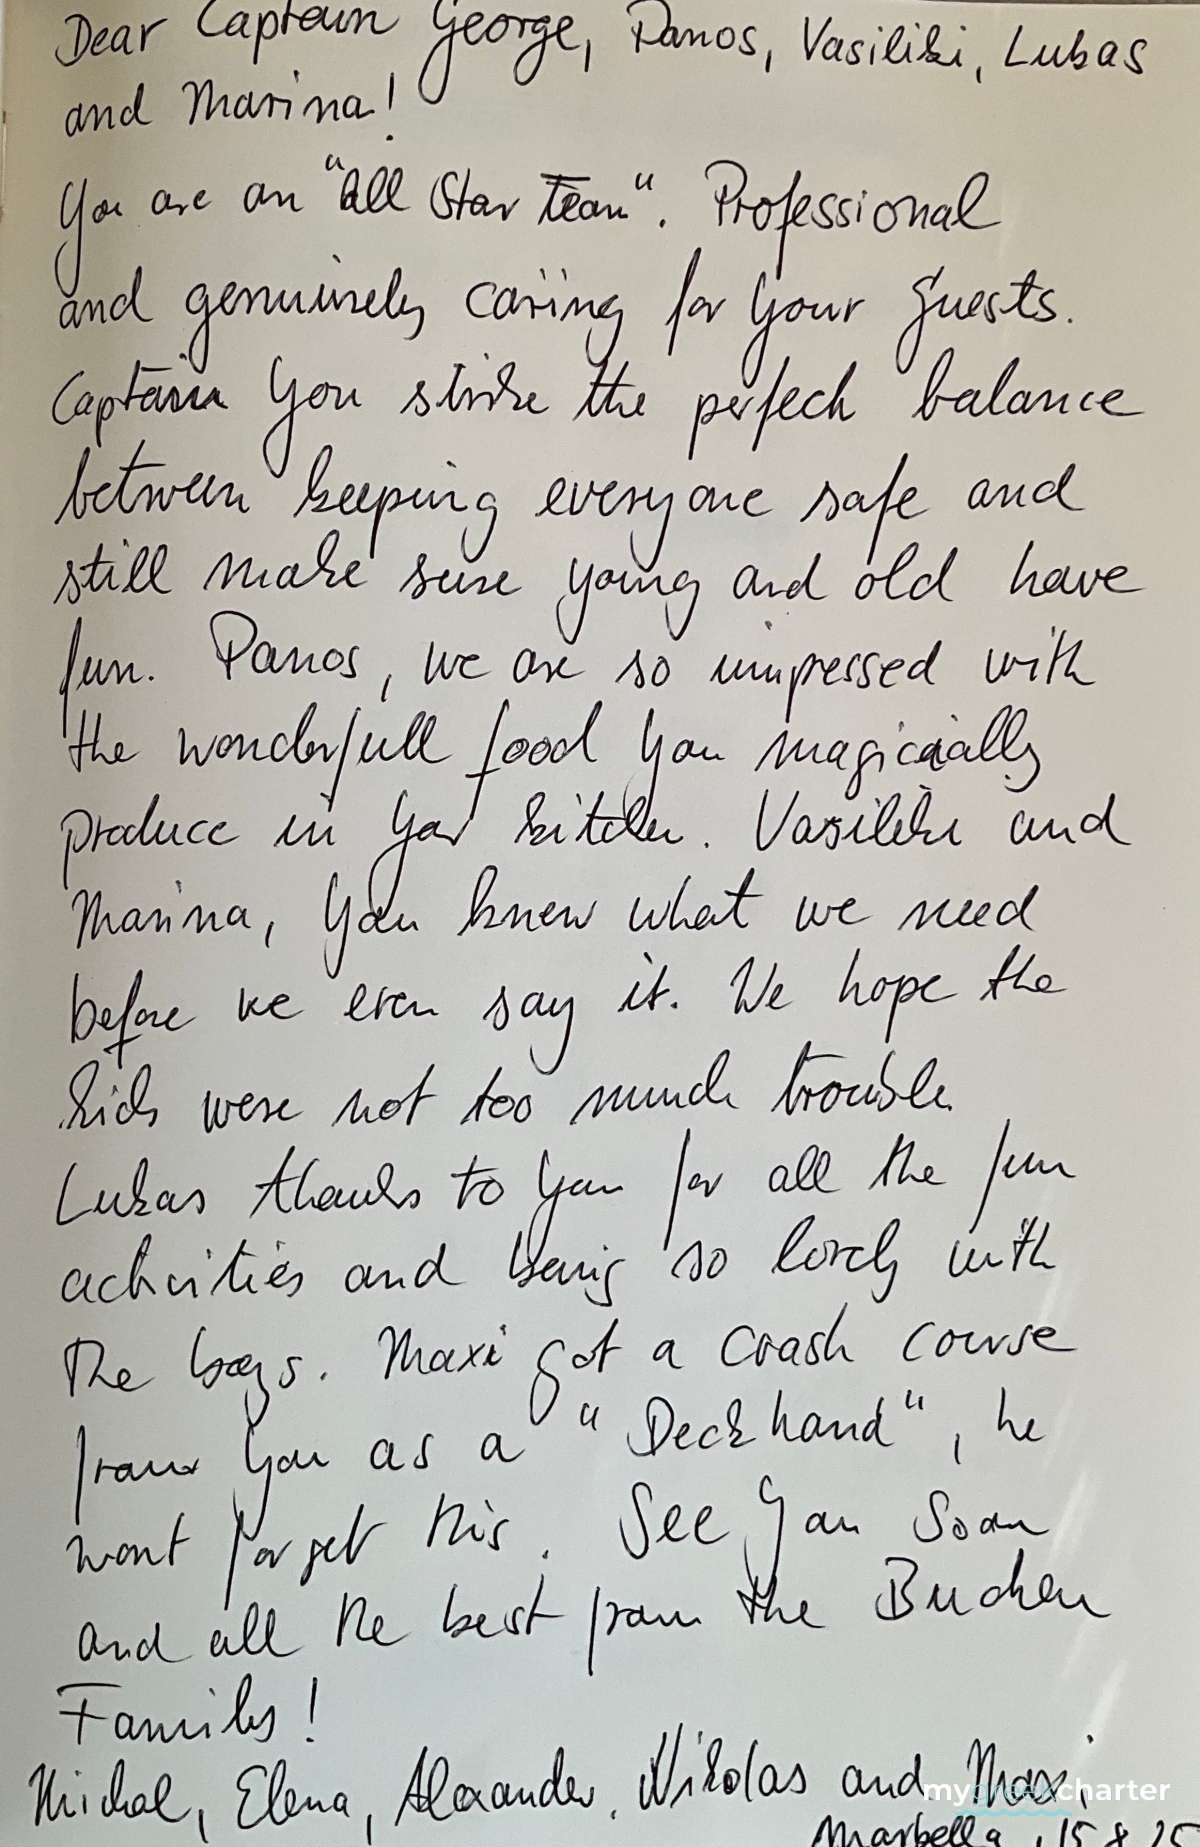 Dear Captain George, Panos, Vasiliki, Lukas
and Marina!
You are an "all Star Team". Professional
and genuinely caring for your guests.
Captain you strike the perfect balance
between keeping everyone safe and
still make sure young and old have
fun. Panos, we are so impressed with
the wonderfull food you magically
produce in your kitchen. Vasiliki and
Marina, you knew what we need
before we even say it. We hope the
kids were not too much trouble.
Lukas thanks to you for all the fun
activities and being so lovely with
the boys. Maxi got a crash course
from you as a "Deckhand", he
wont forget this. See you Soon
and all the best from the
Family!
Michael, Elena, Alexander, Nikolas and Maxi,
mygreekcharter
Marbella, 15.8.25